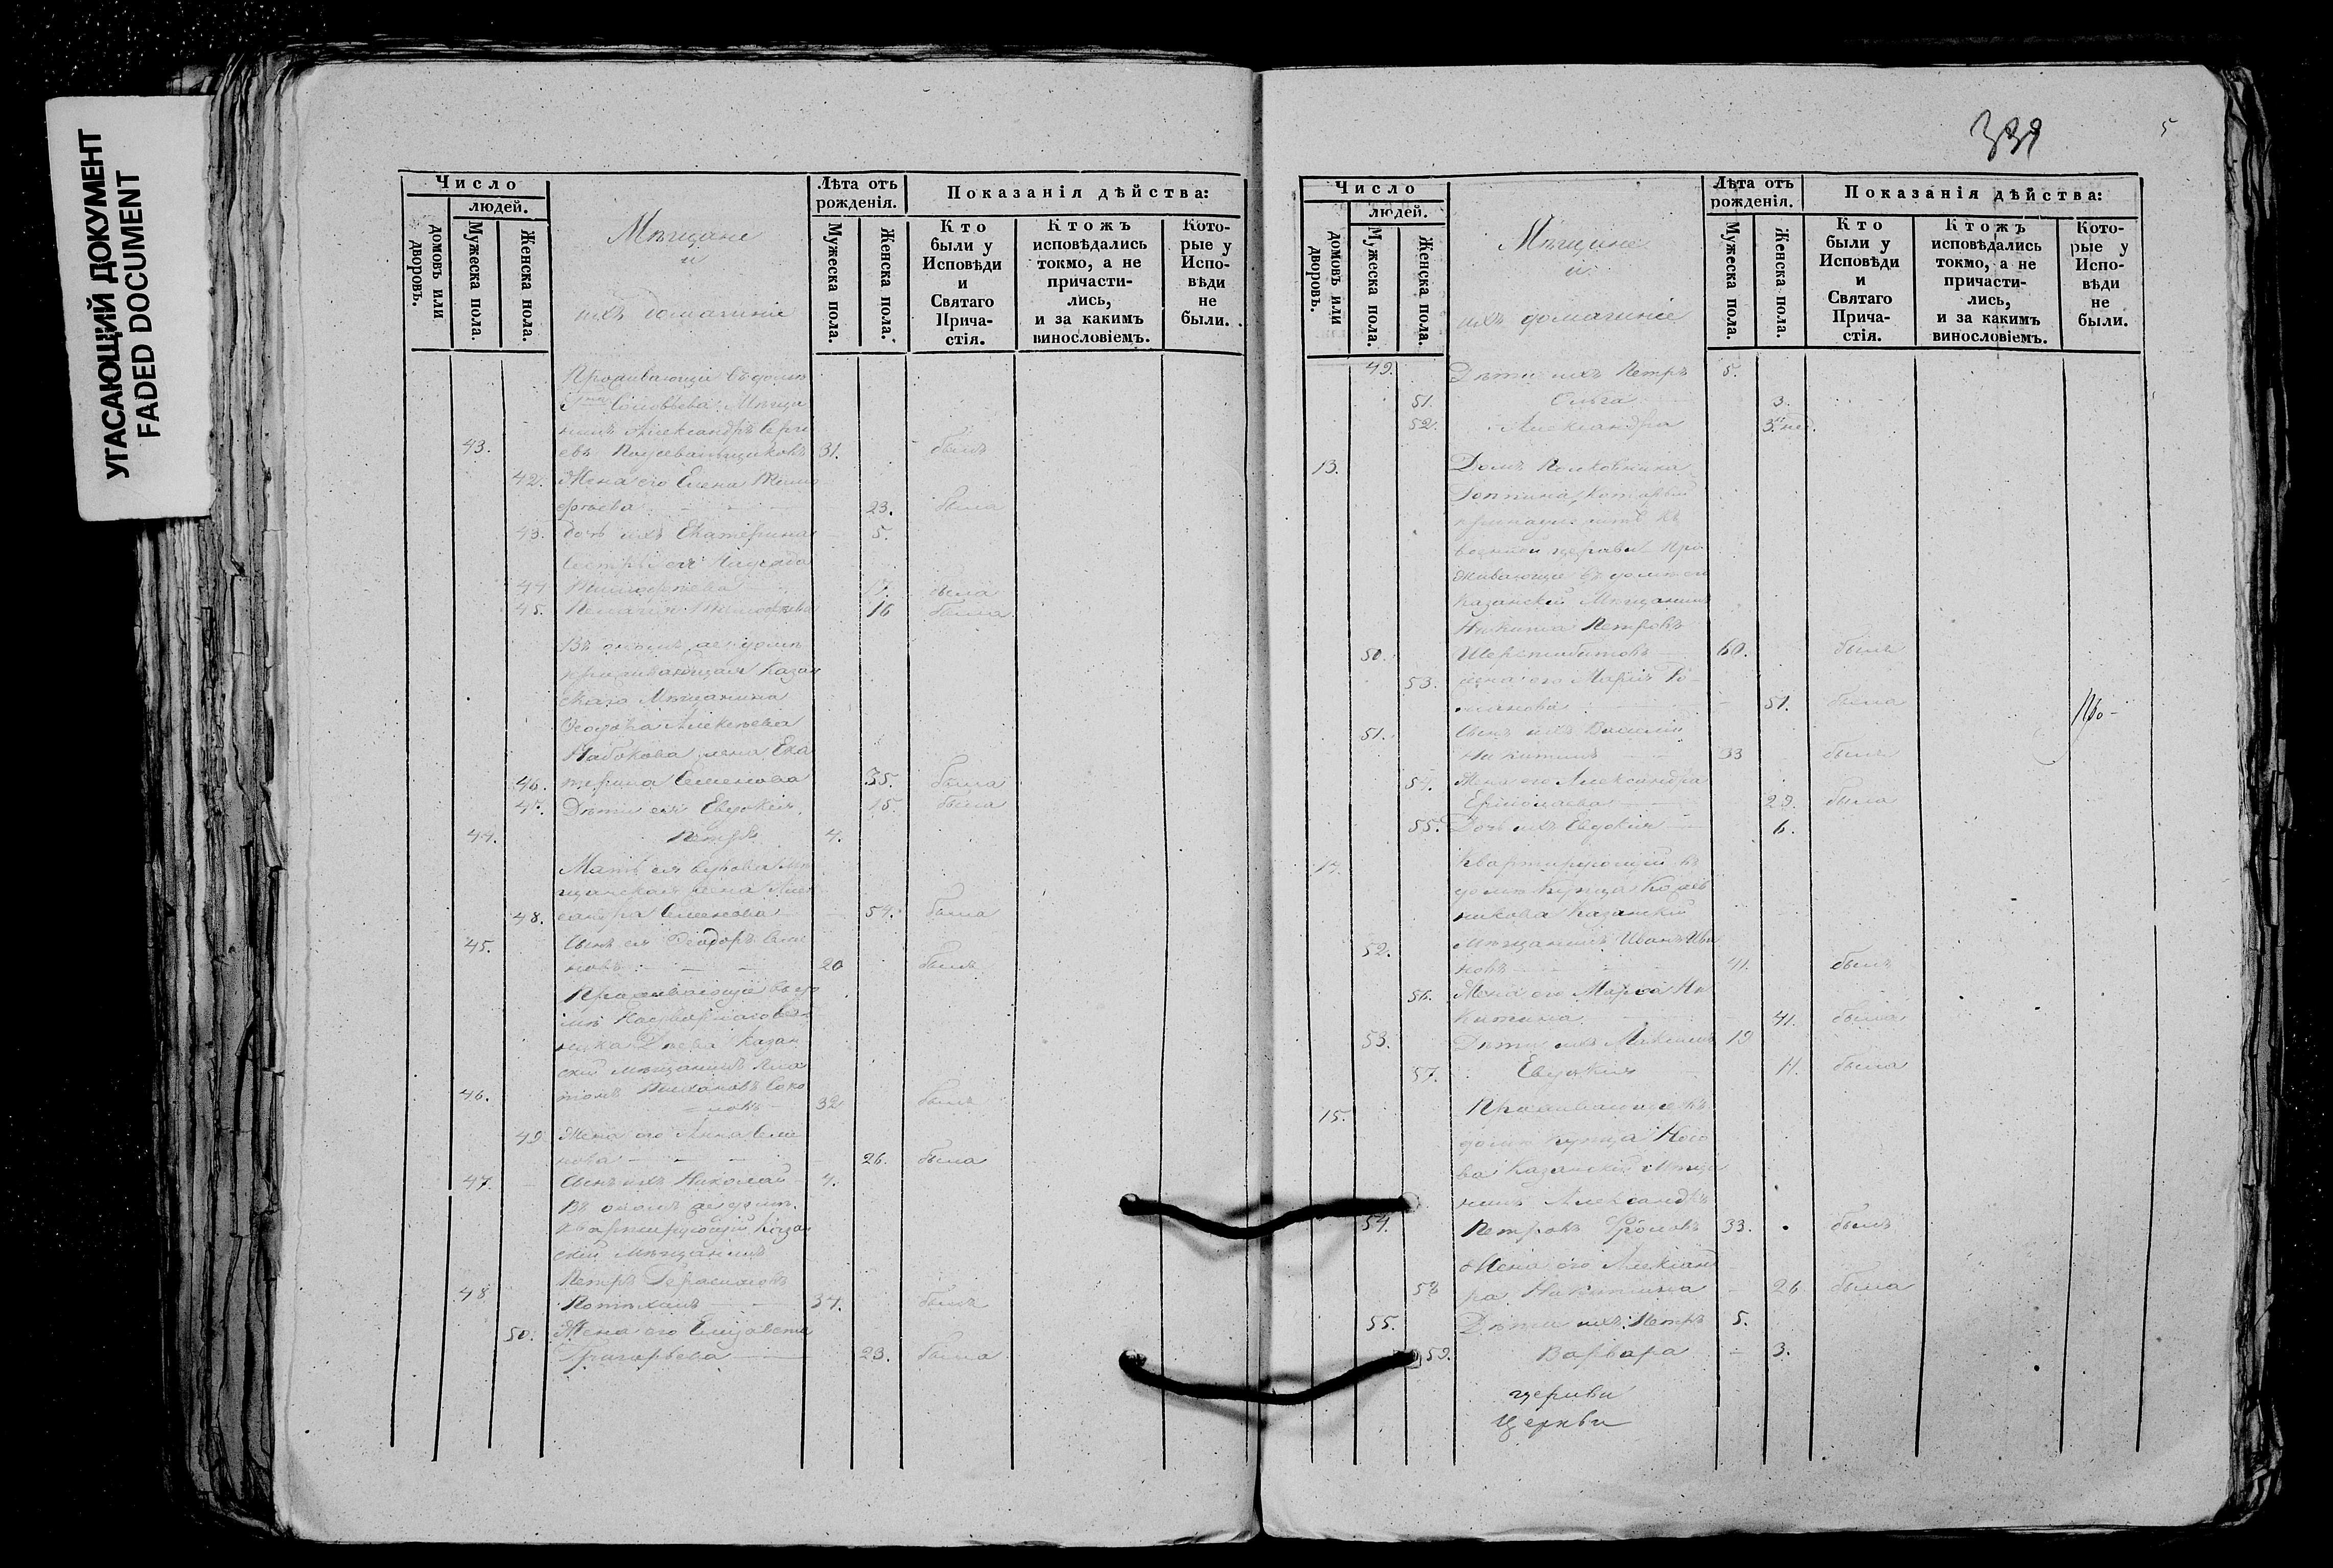 УГАСАЮЩИЙ ДОКУМЕНТ
FADED DOCUMENT
Число
людей.
домовъ или дворовъ.
Мужеска пола.
Женска пола.
Мѣщане
и
ихъ домашніе
Лѣта отъ рожденія.
Мужеска пола.
Женска пола.
Показанія дѣйства:
Кто были у Исповѣди и Святаго Прича-стія.
Ктожъ исповѣдались токмо, а не причасти-лись, и за какимъ винословіемъ.
Кото-рые у Испо-вѣди не были.
Проживающіе въ домѣ
Соловьева Мѣща
нинъ Александръ Серге
43. евъ 31. былъ
42. Жена его Елена Тимо
фѣева 23. была
43. дочь ихъ Екатерина 5.
Сестры ея
44 Тимофѣева 17. была
45. Пелагія Тимофѣева 16 была
Въ ономъ же домѣ
проживающая Казан
скаго Мѣщанина
Алексѣева
Набокова жена Ека
46. терина Семенова 35. была
47. Дѣти ея Евдокія 15. была
44. Петръ 4.
Мать ея вдовая Мѣ
щанская жена Алек
48. сандра Семенова 54. была
45. Сынъ ея Феодоръ Семе
новъ 20 былъ
Проживающій въ до
мѣ Надворнаго Совѣт
ника Казан
скій мѣщанинъ Пла
46. тонъ Соко
ловъ 32 былъ
49 Жена его Анна Семе
нова 26. была
47. Сынъ ихъ Николай 4.
Въ ономъ же домѣ
квартирующій Казан
скій мѣщанинъ
Петръ Герасимовъ
48 34. былъ
50. Жена его Елизавета
Григорьева 23. была
339
5
Число
людей.
домовъ или дворовъ.
Мужеска пола.
Женска пола.
Мѣщане
и
ихъ домашніе
Лѣта отъ рожденія.
Мужеска пола.
Женска пола.
Показанія дѣйства:
Кто были у Исповѣди и Святаго Прича-стія.
Ктожъ исповѣдались токмо, а не причасти-лись, и за какимъ винословіемъ.
Кото-рые у Испо-вѣди не были.
49. Дѣти ихъ Петръ 5.
51. Ольга 3.
52. Александра 3. нед.
13. Домъ Полковника
который
къ
церкви Про
живающіе въ домѣ его
Казанскій Мѣщанинъ
Никита Петровъ
50. Шерстобитовъ 60. былъ
53. жена его Марія Ро-
манова 51. была
51. Сынъ ихъ Василій
Никитинъ 33 былъ
54. Жена его Александра
Ермолаева 29. была
55. Дочь ихъ Евдокія 6.
Про-
14. Квартирующій въ
домѣ Купца
никова Казанскій
52. Мѣщанинъ Иванъ Ива
новъ 41. былъ
56. Жена его Марѳа Ни
китина 41. была
53. Дѣти ихъ Максимъ 19
57. Евдокія 11. была
15. Проживающіе въ
домѣ купца Носо
ва Казанскій Мѣща
нинъ Александръ
54. Петровъ Фроловъ 33. былъ
Жена его Александ
58 ра Никитина 26 была
55. Дѣти ихъ Петръ 5.
59. Варвара 3.
церкви
Церкви